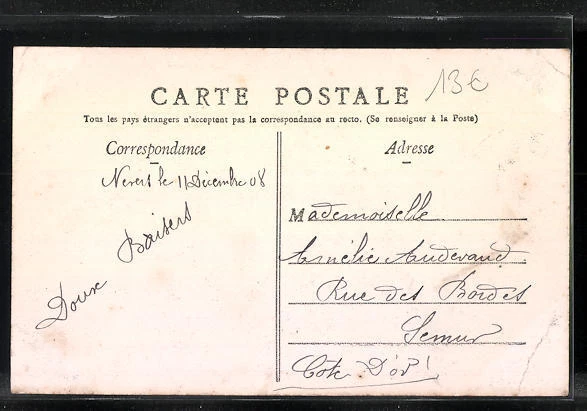 CARTE POSTALE
13€
Tous les pays étrangers n'acceptent pas la correspondance au recto. (Se renseigner à la Poste)
Correspondance
Nevers le 11 Décembre 08
Doux Baisers
Adresse
Mademoiselle
Amélie Audevand
Rue des Bordes
Semur
Côte D'or !